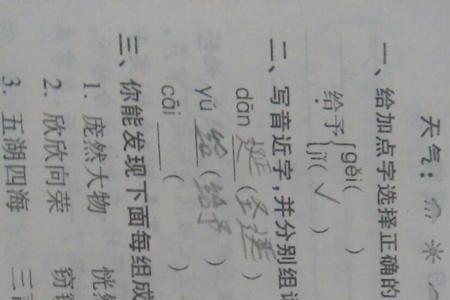 天气：
一、给加点字选择正确的
给予 { gěi( )
jǐ( √ )
二、写音近字，并分别组
dān (圣
yú 给 (给予)
cāi ( )
三、你能发现下面每组成
1. 庞然大物 恍
2. 欣欣向荣 窃
3. 五湖四海 三